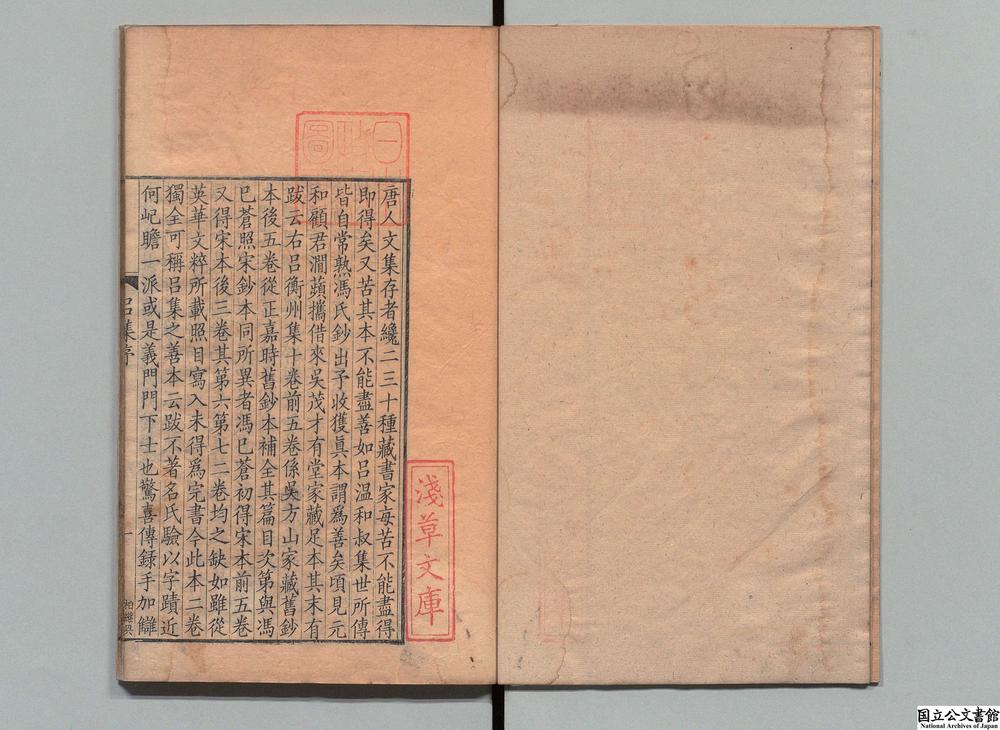 唐人文集存者纔二三十種藏書家每苦不能盡得
即得矣又苦其本不能盡善如吕温和叔集世所傳
皆自常熟馮氏鈔出予收獲眞本謂爲善矣頃見元
和顧君澗蘋攜借來吳茂才有堂家藏足本其末有
跋云右吕衡州集十卷前五卷係吳方山家藏舊鈔
本後五卷從正嘉時舊鈔本補全其篇目次第與馮
已蒼照宋鈔本同所異者馮已蒼初得宋本前五卷
又得宋本後三卷其第六第七二卷均之缺如雖從
英華文粹所載照目寫入未得爲完書今此本二卷
獨全可稱吕集之善本云跋不著名氏驗以字蹟近
何屺瞻一派或是義門門下士也驚喜傳録手加讎
吕集序
一
淺草文庫
国立公文書館
National Archives of Japan